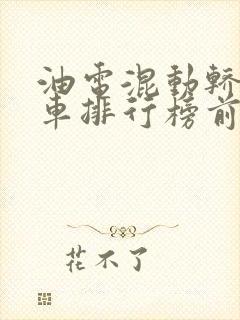 油電混動轎
車排行榜前
花不了